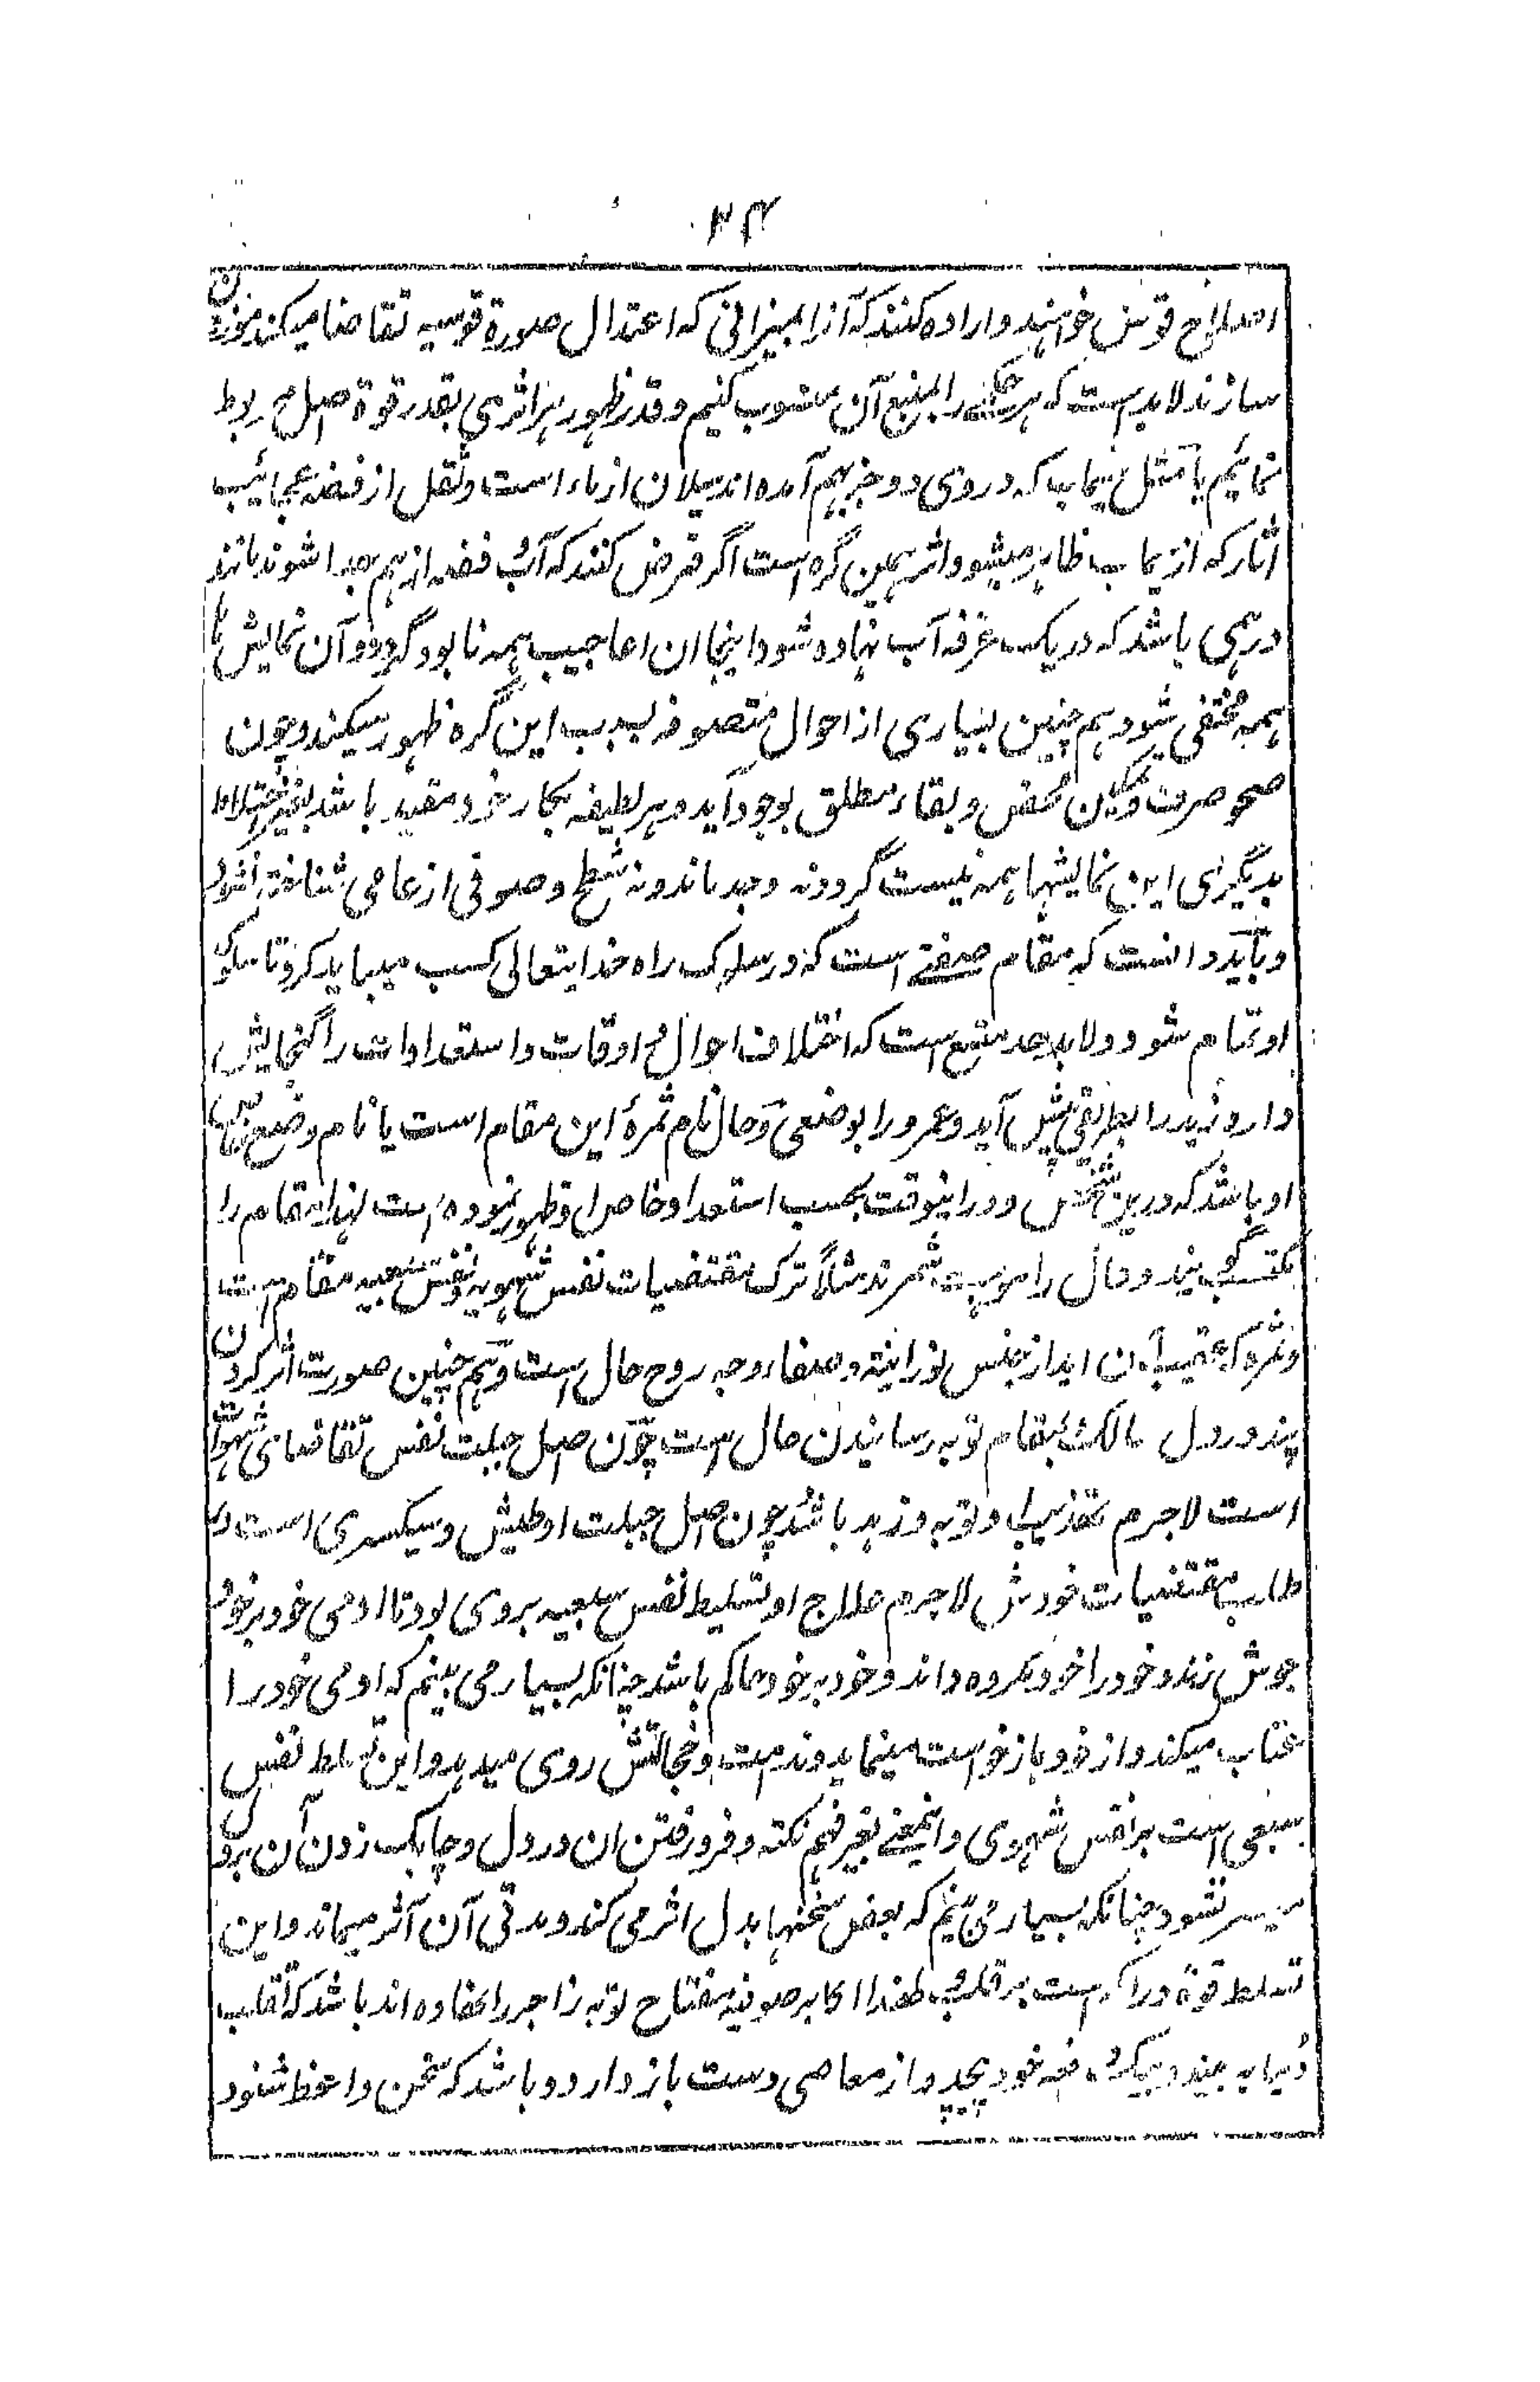 ۳۴
اصلاح قوس خواهند و اراده کنند که آنرا بمیزانی که اعتدال صورة قوسیه تقاضا میکند موزون
سازند لابد ست که هر حکمی را بمنبع آن منسوب کنیم و قدر ظهور هر اثری بقدر قوة اصل مربوط
نمائیم یا مثل سیماب که در وی دو جز بهم آمده اند سیلان از ماء است و ثقل از فضه عجائیب
اثار که از سیماب ظاهر میشود اثر همین گره است اگر فرض کنند که آب و فضه از هم جدا شوند مانند
درهمی باشد که در یک غرفه آب نهاده شود اینجا ان اعاجیب همه نابود گردد و آن نمایش ها
همه مختفی شود هم چنین بسیاری از احوال متصوفه بسبب این گره ظهور میکند و چون
صحو صرف و تمکین محض و بقاء مطلق بوجود آید و هر لطیفه بکار خود مقید باشد بغیر اختلاط
بدیگری این نمایشها همه نیست گردد نه وجد ماند و نه شطح و صوفی از عامی شناخته نشود
و باید دانست که مقام صفتے است که در سلوک راه خدایتعالی کسب میباید کرد تا سلوک
او تمام شود و لابد چیز متسع است که اختلاف احوال و اوقات و استعدادات را گنجایش
دارد زید را بطریقی پیش آید و عمرو را بوضعی و حال نام ثمرهٔ این مقام است یا نام وضع
او باشد که درین شخص و در اینوقت بحسب استعداد خاص او ظهور نموده است لهذا مقام را
مکتسب گویند و حال را موهبت شمرند مثلاً ترک مقتضیات نفس شهویه و نفس سبعیه مقام ست
و ثمره که بعقیب آن آید از جنس نورانیة و صفاء وجه روح حال است و هم چنین صورت اثر کردن
پند در دل سالک بمقام توبه رسانیدن حال است چون اصل جبلت نفس تقاضای شهوات
است لاجرم تهذیب او توبه و زهد باشد چون اصل جبلت او طیش و سبکسری است در
طلب مقتضیات خودش لاجرم علاج او تسلیط نفس سبعیه بروی بود تا ادمی خود بر خود
جوش زند و خود را خود مکروه داند و خود بر خود حاکم باشد چنانکه بسیار می بینم که ادمی خود را
عتاب میکند و از خود بازخواست مینماید و ندامت و خجالتش روی میدهد و این تسلط نفس
سبعی است بر نفس شهوی و اینمعنے بغیر فهم نکته و فرو رفتن ان در دل و چابک زدن آن بروی
میسر نشود چنانکه بسیار می بینم که بعض سخنها بدل اثر می کند و مدتی آن اثر میماند و این
تسلط قوة دراکه است بر قلب لهذا اکابر صوفیه مفتاح توبه زاجر را نهاده اند باشد که تقلب
دنیا به بیند و بیکدفعه خود پیچد و از معاصی دست باز دارد و باشد که سخن واعظ شنود